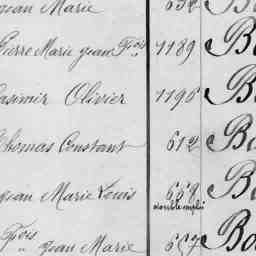 Jean Marie 652 B
Pierre Marie Jean Fçois 1189 B
Casimir Olivier 1196 B
Thomas Constant 612 Ba
Jean Marie Louis 668 B
double emploi
Fçois " Jean Marie 667 Bo